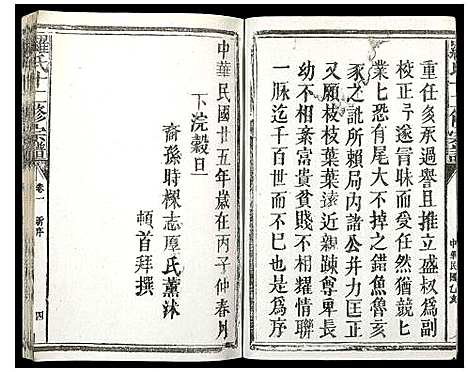 重任多承過譽且推立盛叔爲副
校正予遂冐昧而任然猶兢兢業
業七恐有尾大不掉之錯魚魯亥
豕之訛所賴局內諸公并力匡正
又願枝枝葉葉遠近親踈尊卑長
幼不相棄富貴貧賤不相耀情聯
一脉迄千百世而不巳也是為序
中華民國廿五年歲在丙子仲春月
下浣榖旦
裔孫時樑志厚氏薰沐
頓首拜撰
羅氏十二修宗譜
卷一
新序
四
中華民國乙亥